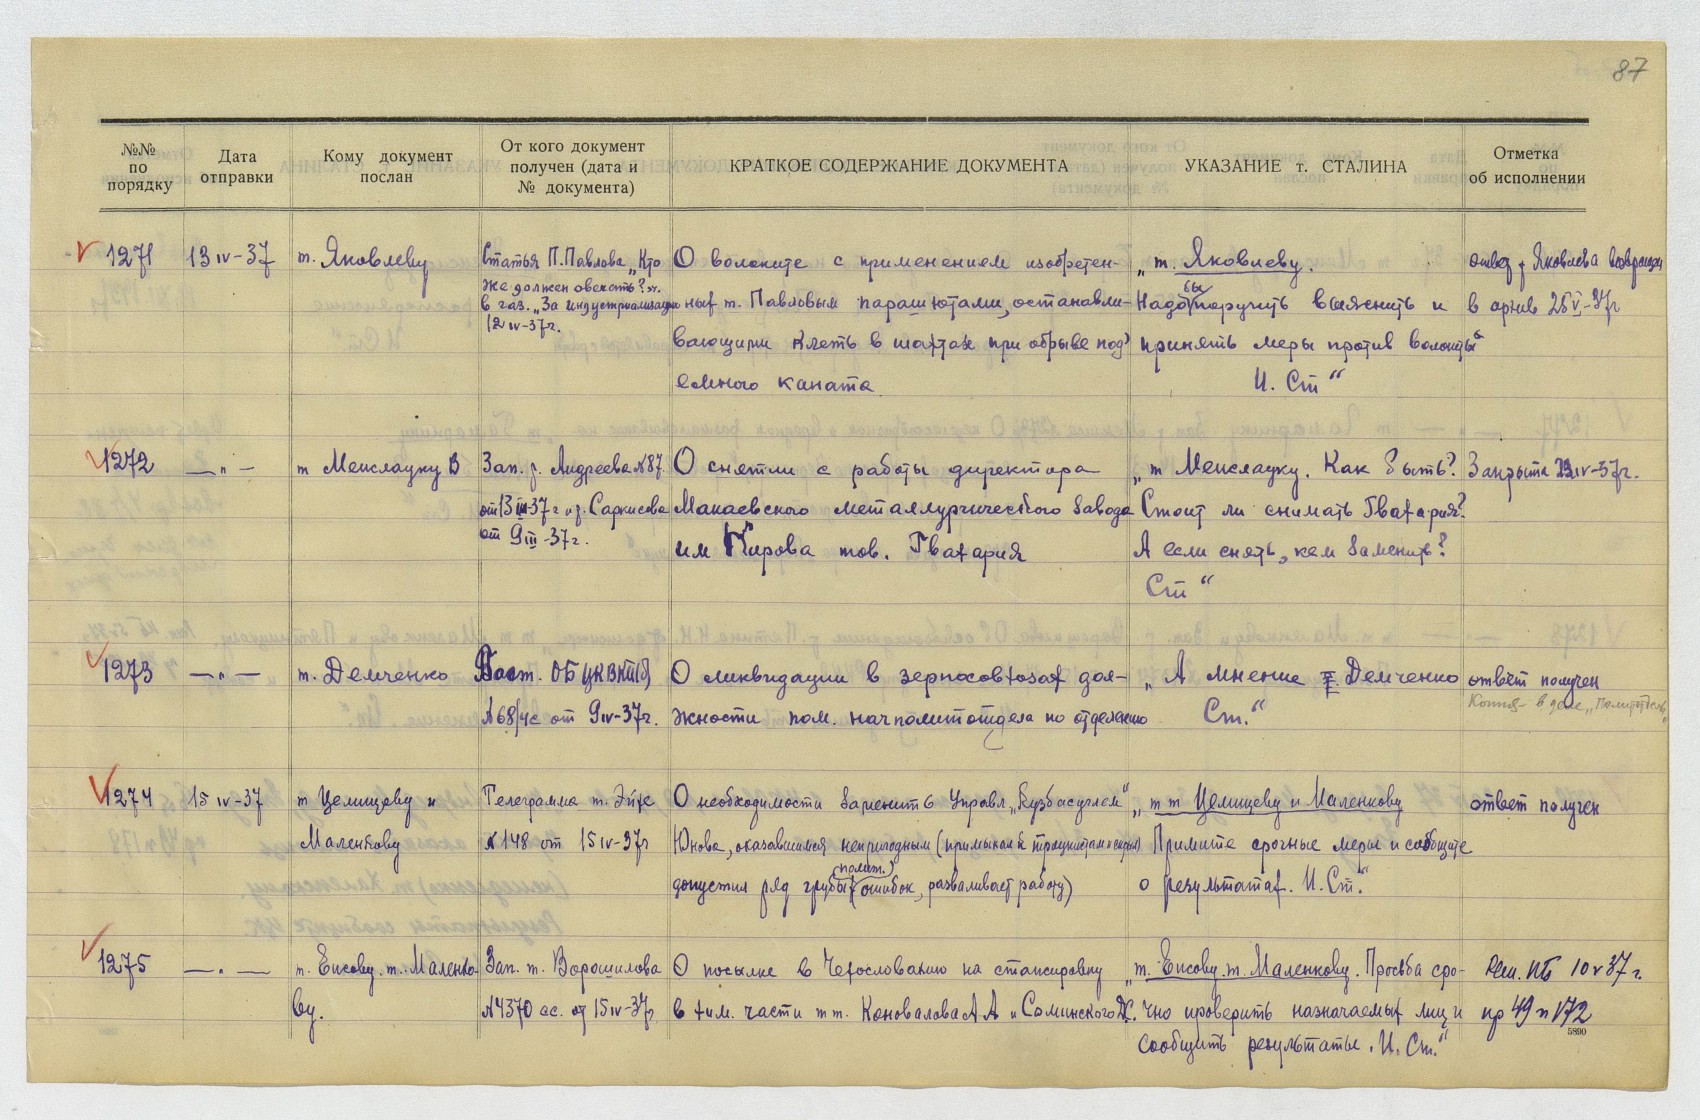 87
№№ по порядку
Дата отправки
Кому документ послан
От кого документ получен (дата и № документа)
КРАТКОЕ СОДЕРЖАНИЕ ДОКУМЕНТА
УКАЗАНИЕ т. СТАЛИНА
Отметка об исполнении
1271
13 IV-37
т. Яковлеву
Статья П. Павлова „Кто
же должен отвечать?"
в газ. „За индустриализацию
12 IV-37г.
О волоките с применением изобретен-
ных т. Павловым парашютами, останавли-
вающими клеть в шахтах при обрыве под'
емного каната
„т. Яковлеву.
Надо бы поручить выяснить и
принять меры против волокиты
И. Ст"
ответ т Яковлева возвращен
в архив 25 V-37г
1272
— „ —
т Межлауку В
Зап. т. Андреева №87
от 13 III-37г и т. Саркисова
от 9 III-37г.
О снятии с работы директора
Макеевского металлургического завода
им Кирова тов. Гвахария
„т Межлауку. Как быть?
Стоит ли снимать Гвахария?
А если снять, кем заменить?
Ст"
Закрыта 23 IV-37г.
1273
— „ —
т. Демченко
Пост. ОБ ЦК ВКП(б)
№68/чс от 9 IV-37г.
О ликвидации в зерносовхозах дол-
жности пом. начполитотдела по отделению
„А мнение т. Демченко
Ст."
ответ получен
Копия - в деле „Политотделы"
1274
15 IV-37
т Целищеву и
Маленкову
Телеграмма т. Эйхе
№148 от 15 IV-37г
О необходимости заменить Управл „Кузбасуглем"
Юнова, оказавшимся непригодным (примыкал к троцкистам
допустил ряд грубых (полит.) ошибок, разваливает работу)
„т т Целищеву и Маленкову
Примите срочные меры и сообщите
о результатах. И. Ст."
ответ получен
1275
— „ —
т. Ежову. т. Маленко-
ву.
Зап. т. Ворошилова
№4370 сс. от 15 IV-37г
О посылке в Чехословакию на стажировку
в хим. части т т. Коновалова А А и Соминского Д.С.
„т. Ежову. т. Маленкову. Просьба сро-
чно проверить назначаемых лиц и
сообщить результаты. И. Ст."
Реш. ПБ 10 V 37 г.
пр 49 п 172
5890